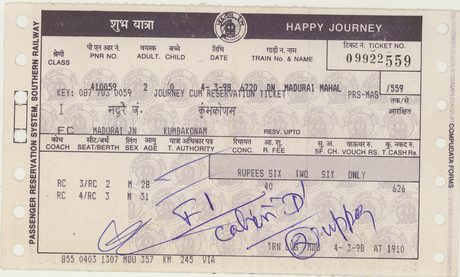 शुभ यात्रा HAPPY JOURNEY
श्रेणी पी एन आर नं. वयस्क बच्चे तिथि गाड़ी न.नाम टिकट नं. TICKET NO.
CLASS PNR NO. ADULT. CHILD DATE TRAIN No. & NAME 09922559
410059 2 0 4-3-98 6720 DN MADURAI MAHAL /559
KEY: 087 703 0059 JOURNEY CUM RESERVATION TICKET PRS-MAS
तक आरक्षित
I மதுரை ஜ. கும்பகோணம்
FC MADURAI JN KUMBAKONAM RESV. UPTO
कोच सीट/बर्थ लिंग आयु यात्रा अधिकार पत्र
COACH SEAT/BERTH SEX AGE T. AUTHORITY CON. R. FEE SU. CH. SF. CH. VOUCHER RS. T.CASH Rs.
RUPEES SIX TWO SIX ONLY
RC 3/RC 2 M 28 40 626
RC 4/RC 3 M 31
F1 Cabin 'D'
upper
TRN MDU 4-3-98 AT 1910
855 0403 1307 MDU 357 KM 245 VIA
PASSENGER RESERVATION SYSTEM, SOUTHERN RAILWAY
COMPUDATA FORMS